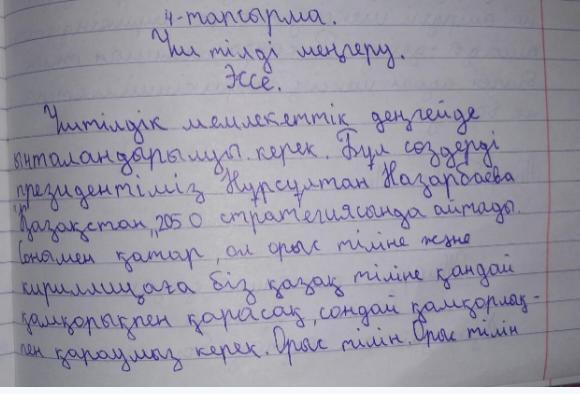 4-тапсырма.
Үш тілді меңгеру.
Эссе.
Үштілдік мемлекеттік деңгейде
ынталандырылуы керек. Бұл сөздерді
президентіміз Нұрсұлтан Назарбаева
Қазақстан „2050 стратегиясында айтады.
Сонымен қатар, ол орыс тіліне және
кириллицаға біз қазақ тіліне қандай
қамқорықпен қарасақ, сондай қамқорлық-
пен қарауымыз керек. Орыс тілін. Орыс тілін